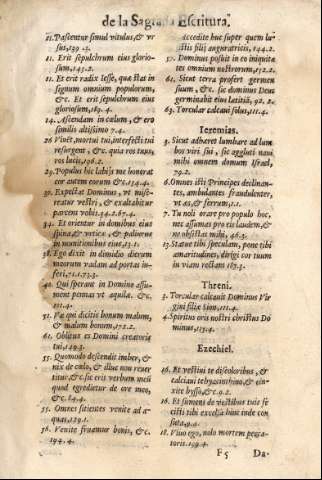 de la Sagrada Escritura.
11. Pascentur simul vitulus, & vr
sus, 139.3.
11. Erit sepulchrum eius glorio-
sum, 145.2.
11. Et erit radix Iesse, quæ stat in
signum omnium populorum,
&c. Et erit sepulchrum eius
gloriosum, 169.4.
14. Ascendam in cœlum, & ero
similis altissimo 7.4.
26. Vivẽt, mortui tui, interfecti tui
resurgent, &c. quia ros tuus,
ros lucis, 196.2.
29. Populus hic labijs me honorat
cor autem eorum &c. 134.4.
30. Expectat Dominus, vt mise-
reatur vestri, & exaltabitur
parcens vobis. 34.2.67.4.
34. Et orientur in domibus eius
spinæ, & vrticæ, & paliurus
in munitionibus eius, 13.1.
38. Ego dixi in dimidio dierum
meorum vadam ad portas in-
feri, 71.1.73.3.
40. Qui sperant in Domino assu-
ment pennas vt aquilæ, &c.
111.4.
51. Væ qui dicitis bonum malum,
& malum bonum, 172.2.
61. Oblitus es Domini creatoris
tui, 129.3.
55. Quomodo descendit imber, &
nix de cœlo, & illuc non rever
titur, &c. sic erit verbum meũ
quod egredietur de ore meo,
&c. 14.4.
55. Omnes sitientes venite ad a-
quas, 129.1.
56. Venite fruamur bonis, &c.
194.4.
accedite huc super quem lu-
sistis filij auguratricis, 144.2.
57. Dominus posuit in eo iniquita
tes omnium nostrorum, 152.2.
61. Sicut terra profert germen
suum, &c. sic dominus Deus
germinabit eius lætitiã, 92.2.
63. Torcular calcavi solus, 111.4.
Ieremias.
3. Sicut adhæret lumbare ad lum
bos viri sui, sic agglutinavi
mihi omnem domum Israel,
79.2.
6. Omnes isti Principes declinan-
tes, ambulantes fraudulenter,
vt æs, & ferrum, 1.1.
7. Tu noli orare pro populo hoc,
nec assumas pro eis laudem, &
ne obsistas mihi, 46.3.
13. Statue tibi speculam, pone tibi
amaritudines, dirige cor tuum
in viam rectam 187.3.
Threni.
3. Torcular calcavit Dominus Vir
gini filiæ sion, 111.4.
4. Spiritus oris nostri christus Do
minus, 115.4.
Ezechiel.
16. Et vestivi te discoloribus, &
calciavi te hyacinthino, & cin-
xi te bysso, &c. 9.2.
16. Et sumens de vestibus tuis fe
cisti tibi excelsa hinc inde con
suta, 9.4.
18. Vivo ego, nolo mortem pecca-
toris. 159.4.
F5
Da-